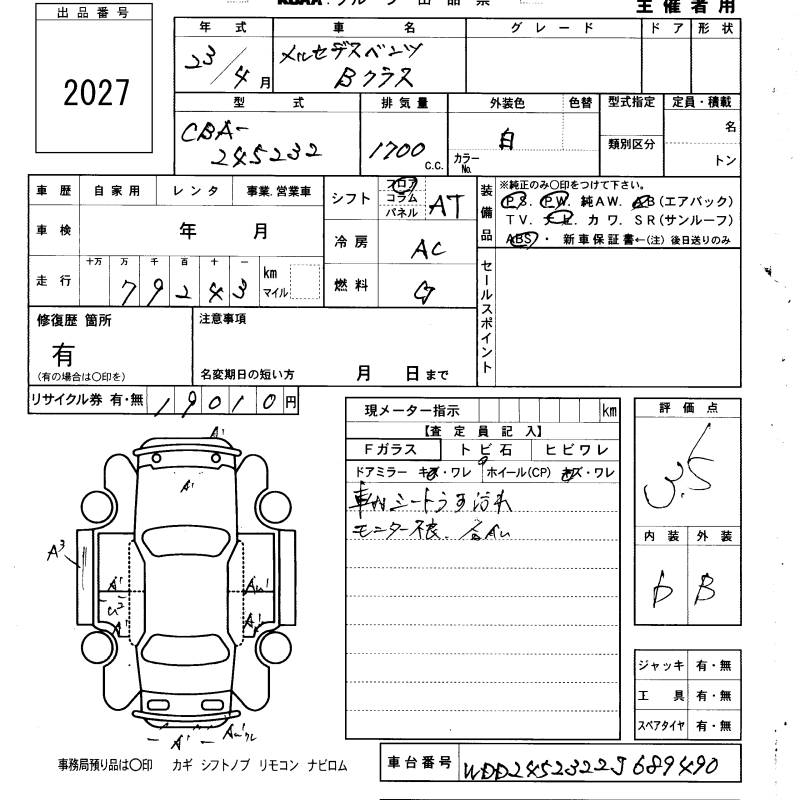 主催者用
出品番号
2027
年式
車名
グレード
ドア
形状
23/4月
メルセデスベンツ
Bクラス
型式
排気量
外装色
色替
型式指定
定員・積載
CBA-
245232
1700
c.c.
白
カラーNo.
類別区分
名
トン
車歴
自家用
レンタ
事業.営業車
シフト
フロア
コラム
パネル
AT
装備品
※純正のみ○印をつけて下さい。
PS. PW. 純AW. AB(エアバック)
TV. ナビ. カワ. SR(サンルーフ)
ABS・ 新車保証書←(注) 後日送りのみ
車検
年 月
冷房
AC
走行
十万 万 千 百 十 一
79243
km
マイル
燃料
G
セールスポイント
修復歴 箇所
有
(有の場合は○印を)
注意事項
名変期日の短い方 月 日まで
リサイクル券 有・無 19010円
現メーター指示 km
【査定員記入】
Fガラス
トビ石
ヒビワレ
ドアミラー キズ・ワレ
ホイール(CP) キズ・ワレ
車内シートうす汚れ
モニター不良.
評価点
3.5
内装
外装
D
B
A1
A1
A3
A1
U2
A1
AU1
A1
ジャッキ 有・無
工具 有・無
スペアタイヤ 有・無
事務局預り品は○印 カギ シフトノブ リモコン ナビロム
車台番号
WDD2452322J689490